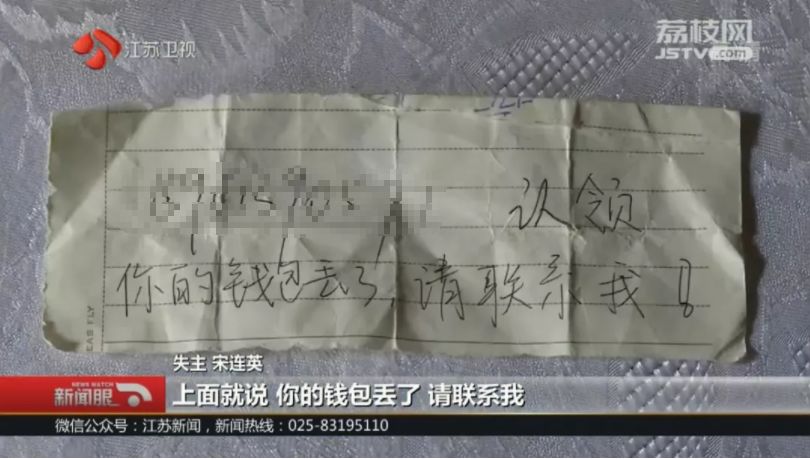 江苏卫视
荔枝网
JSTV.com
认领
你的钱包丢了,请联系我!
EAS FLY
失主 宋连英
NEWS WATCH
新闻眼
上面就说 你的钱包丢了 请联系我
微信公众号:江苏新闻,新闻热线:025-83195110